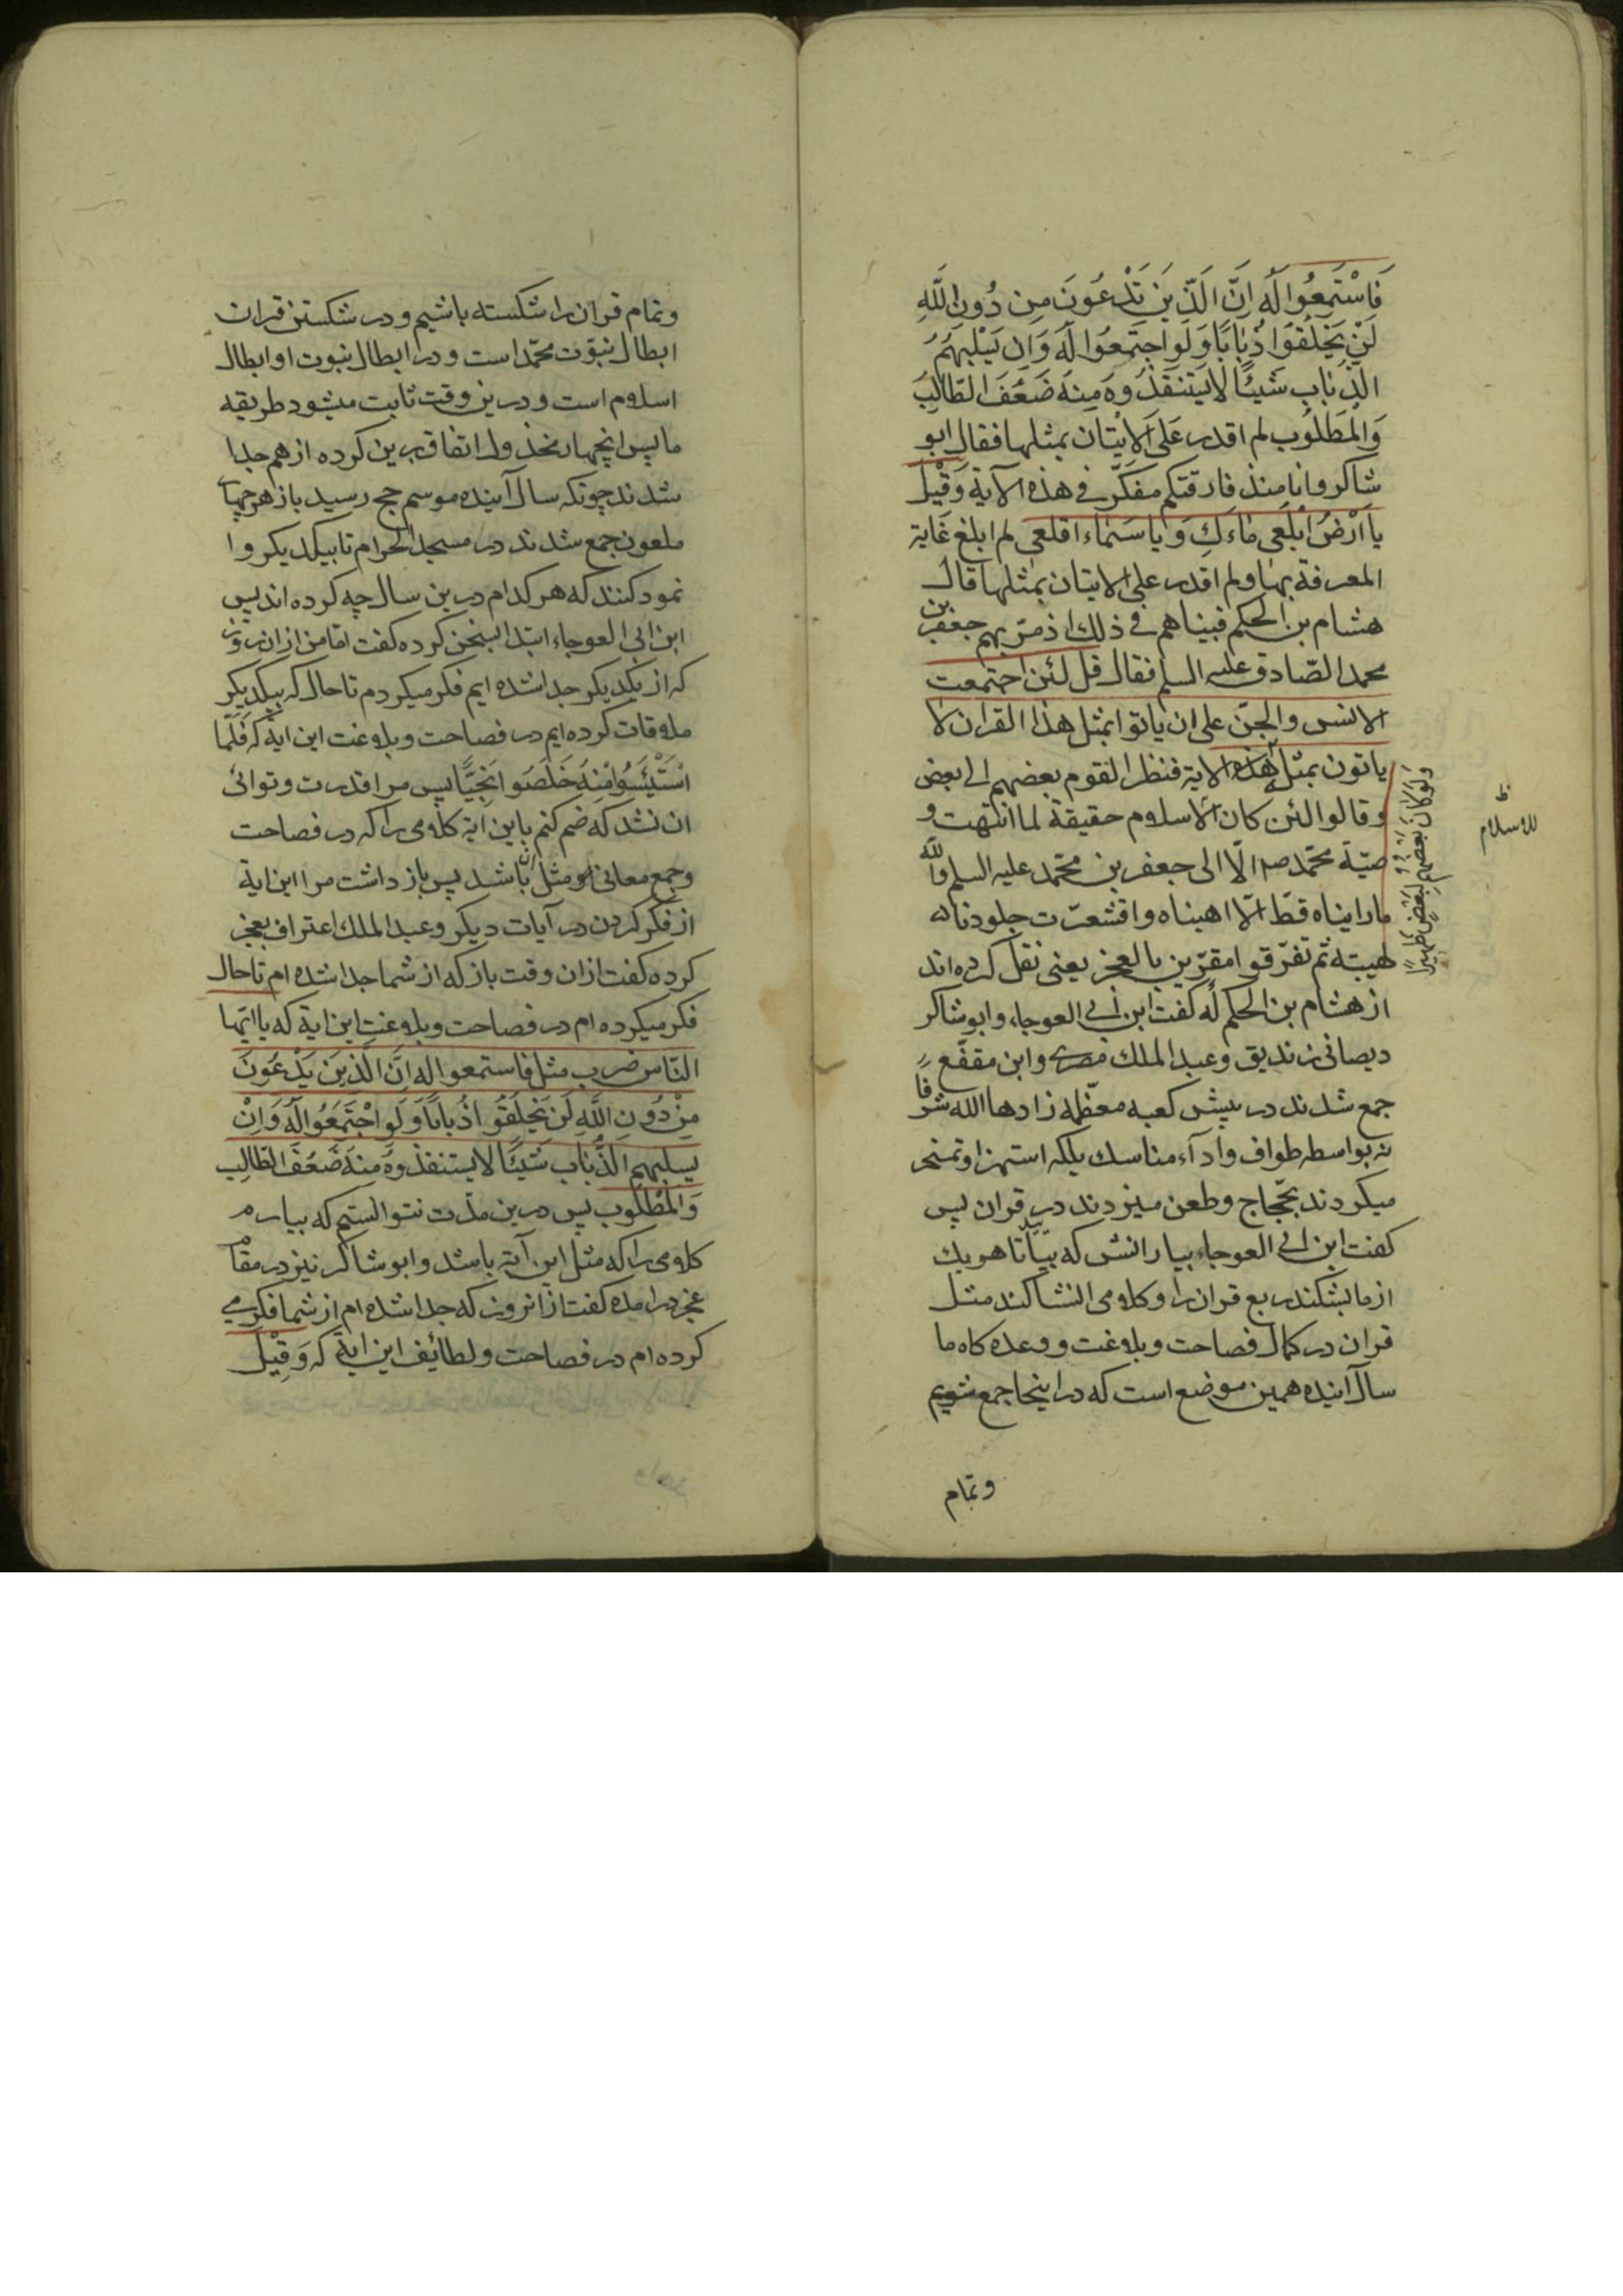 فَاسْتَمِعُوا لَهُ اِنَّ الَّذِينَ تَدْعُونَ مِن دُونِ اللَّهِ
لَنْ يَخْلُقُوَا ذُبَابًا وَلَوِ اجْتَمَعُوا لَهُ وَاِن يَسْلُبْهُمُ
الذُّبَابُ شَيئًا لَا يَسْتَنْقِذُوهُ مِنهُ ضَعُفَ الطّالِبُ
وَالْمَطْلُوبِ لم اقدر عَلَى الاِتيان بمثلها فقال ابو
شاكر وانا منذ فارقتكم مفكّر فى هذه الآية وَقِيْلَ
يا اَرْضُ ابْلَعِى مَاءَكِ وَيا سَمَاءُ اقلعى لم ابلغ غاية
المعرفة بها ولم اقدر على الاتيان بمثلها قال
هشام بن الحكم فبيناهم فى ذلك اذ مرّ بهم جعفر بن
محمد الصّادق عليه السلم فقال قل لئن اجتمعت
الانس والجنّ على ان ياتوا بمثل هذا القران لا
ياتون بمثله الاية فنظر القوم بعضهم الى بعض
وقالوا لئن كان الاسلام حقيقة لما انتهت و
صيّة محمّد ص الّا الى جعفر بن محمّد عليه السلم والله
ما رايناه قطّ الّا اهبناه واقشعرّت جلودنا له
لهيبته ثم تفرّقوا مقرّين بالعجز يعنى نقل كرده اند
از هشام بن الحكم كه كفت ابن ابى العوجاء وابوشاكر
ديصانى زنديق وعبد الملك مصرى وابن مقفّع
جمع شدند در پيش كعبه معظمه زادها الله شرفًا
نه بواسطه طواف وادآء مناسك بلكه استهزا وتمسخر
ميكردند بحّجاج وطعن ميزدند در قران پس
كفت ابن ابى العوجاء بيارانش كه بيائيد تا هريك
از ما بشكند ربع قران را وكلامى انشا كند مثل
قران در كمال فصاحت وبلاغت ووعده كاه ما
سال آينده همين موضع است كه در اينجا جمع شويم
وتمام
ولو كان بعضهم لبعض ظهيرا
ظ
للاسلام
وتمام قران را شكسته باشيم ودر شكستن قران
ابطال نبوّت محمّد است ودر ابطال نبوت او ابطال
اسلام است ودرين وقت ثابت ميشود طريقه
ما پس انچهار مخذول اتفاق برين كرده از هم جدا
شدند چونكه سال آينده موسم حج رسيد باز هرچهار
ملعون جمع شدند در مسجد الحرام تا بيكديكر وا
نمود كنند كه هركدام درين سال چه كرده اند پس
ابن ابى العوجاء ابتدا بسخن كرده كفت اما من ازان روز
كه از يكديكر جدا شده ايم فكر ميكردم تا حال كه بيكديكر
ملاقات كرده ايم در فصاحت وبلاغت اين ايه كه فَلَمّا
اسْتَيْئَسُوا مِنْهُ خَلَصُوا نَجِيًّا پس مرا قدرت وتوانائى
ان نشد كه ضم كنم باين ايه كلامى را كه در فصاحت
وجمع معانى مثل ان باشد پس باز داشت مرا اين اية
از فكر كردن در آيات ديكر وعبد الملك اعتراف بعجز
كرده كفت ازان وقت باز كه از شما جدا شده ام تا حال
فكر ميكرده ام در فصاحت وبلاغت اين اية كه يا ايّها
النّاس ضرب مثل فاستمعوا له اِنَّ الَّذِينَ يَدْعُونَ
مِنْ دُونِ اللَّهِ لَن يَخْلُقُوا ذُبابًا وَلَو اجْتَمَعُوا لَهُ وَاِنْ
يسلبهم الذُّباب شَيئًا لا يستنقذوهُ مِنهُ ضَعُفَ الطّالِب
وَالْمَطْلُوب پس درين مدّت نتوانستم كه بيارم
كلامى را كه مثل اين آية باشد وابو شاكر نيز در مقام
عجز درامده كفت از انروز كه جدا شده ام از شما فكر مى
كرده ام در فصاحت ولطائف اين اية كه وَقِيْلَ